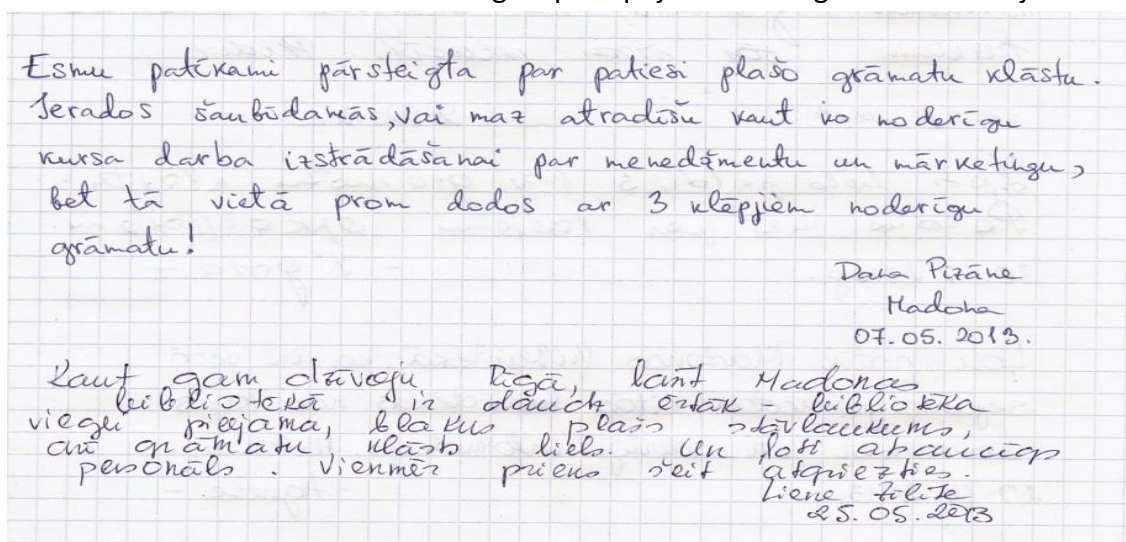 Esmu patīkami pārsteigta par patiesi plašo grāmatu klāstu.
Ierados šaubīdamās, vai maz atradīšu kaut ko noderīgu
kursa darba izstrādāšanai par menedžmentu un mārketingu,
bet tā vietā prom dodos ar 3 klēpjiem noderīgu
grāmatu!
Dana Pizāne
Madona
07.05.2013.
Kaut gam dzīvoju Rīgā, lasīt Madonas
bibliotekā ir daudz ērtāk - bibliotēka
viegli pieejama, blakus plašs stāvlaukums,
arī grāmatu klāsts liels. Un ļoti atsaucīgs
personāls. Vienmēr prieks šeit atgriezties.
Liene
25.05.2013